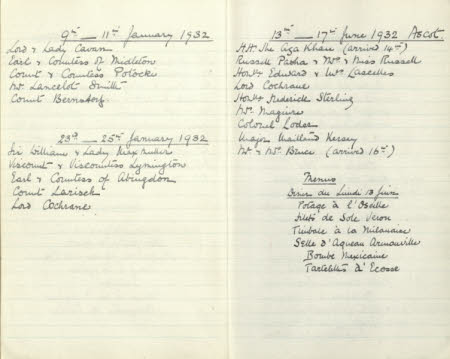 9th _ 11th January 1932
Lord & Lady Cavan
Earl & Countess of Midleton
Count & Countess Potocki
Mr. Lancelot Smith
Count Bernsdorf.
23rd _ 25th January 1932
Sir William & Lady
Viscount & Viscountess Lymington
Earl & Countess of Abingdon
Count Larisch
Lord Cochrane
13th _ 17th June 1932 Ascot
H.H. The Aga Khan (arrived 14th)
Russell Pasha & Mrs & Miss Russell
Honble Edward & Mrs Lascelles
Lord Cochrane
Honble Frederick Sterling
Mrs. Maguire
Colonel Loder
Major Maitland Kersey
Mr & Mrs. Bruce (arrived 16th)
Menus
Diner du Lundi 13 Juin
Potage à l'Oseille
Filets de Sole Veron
Timbale à la Milanaise
Selle d'Agneau
Bombe Mexicaine
Tartelettes d'Ecosse